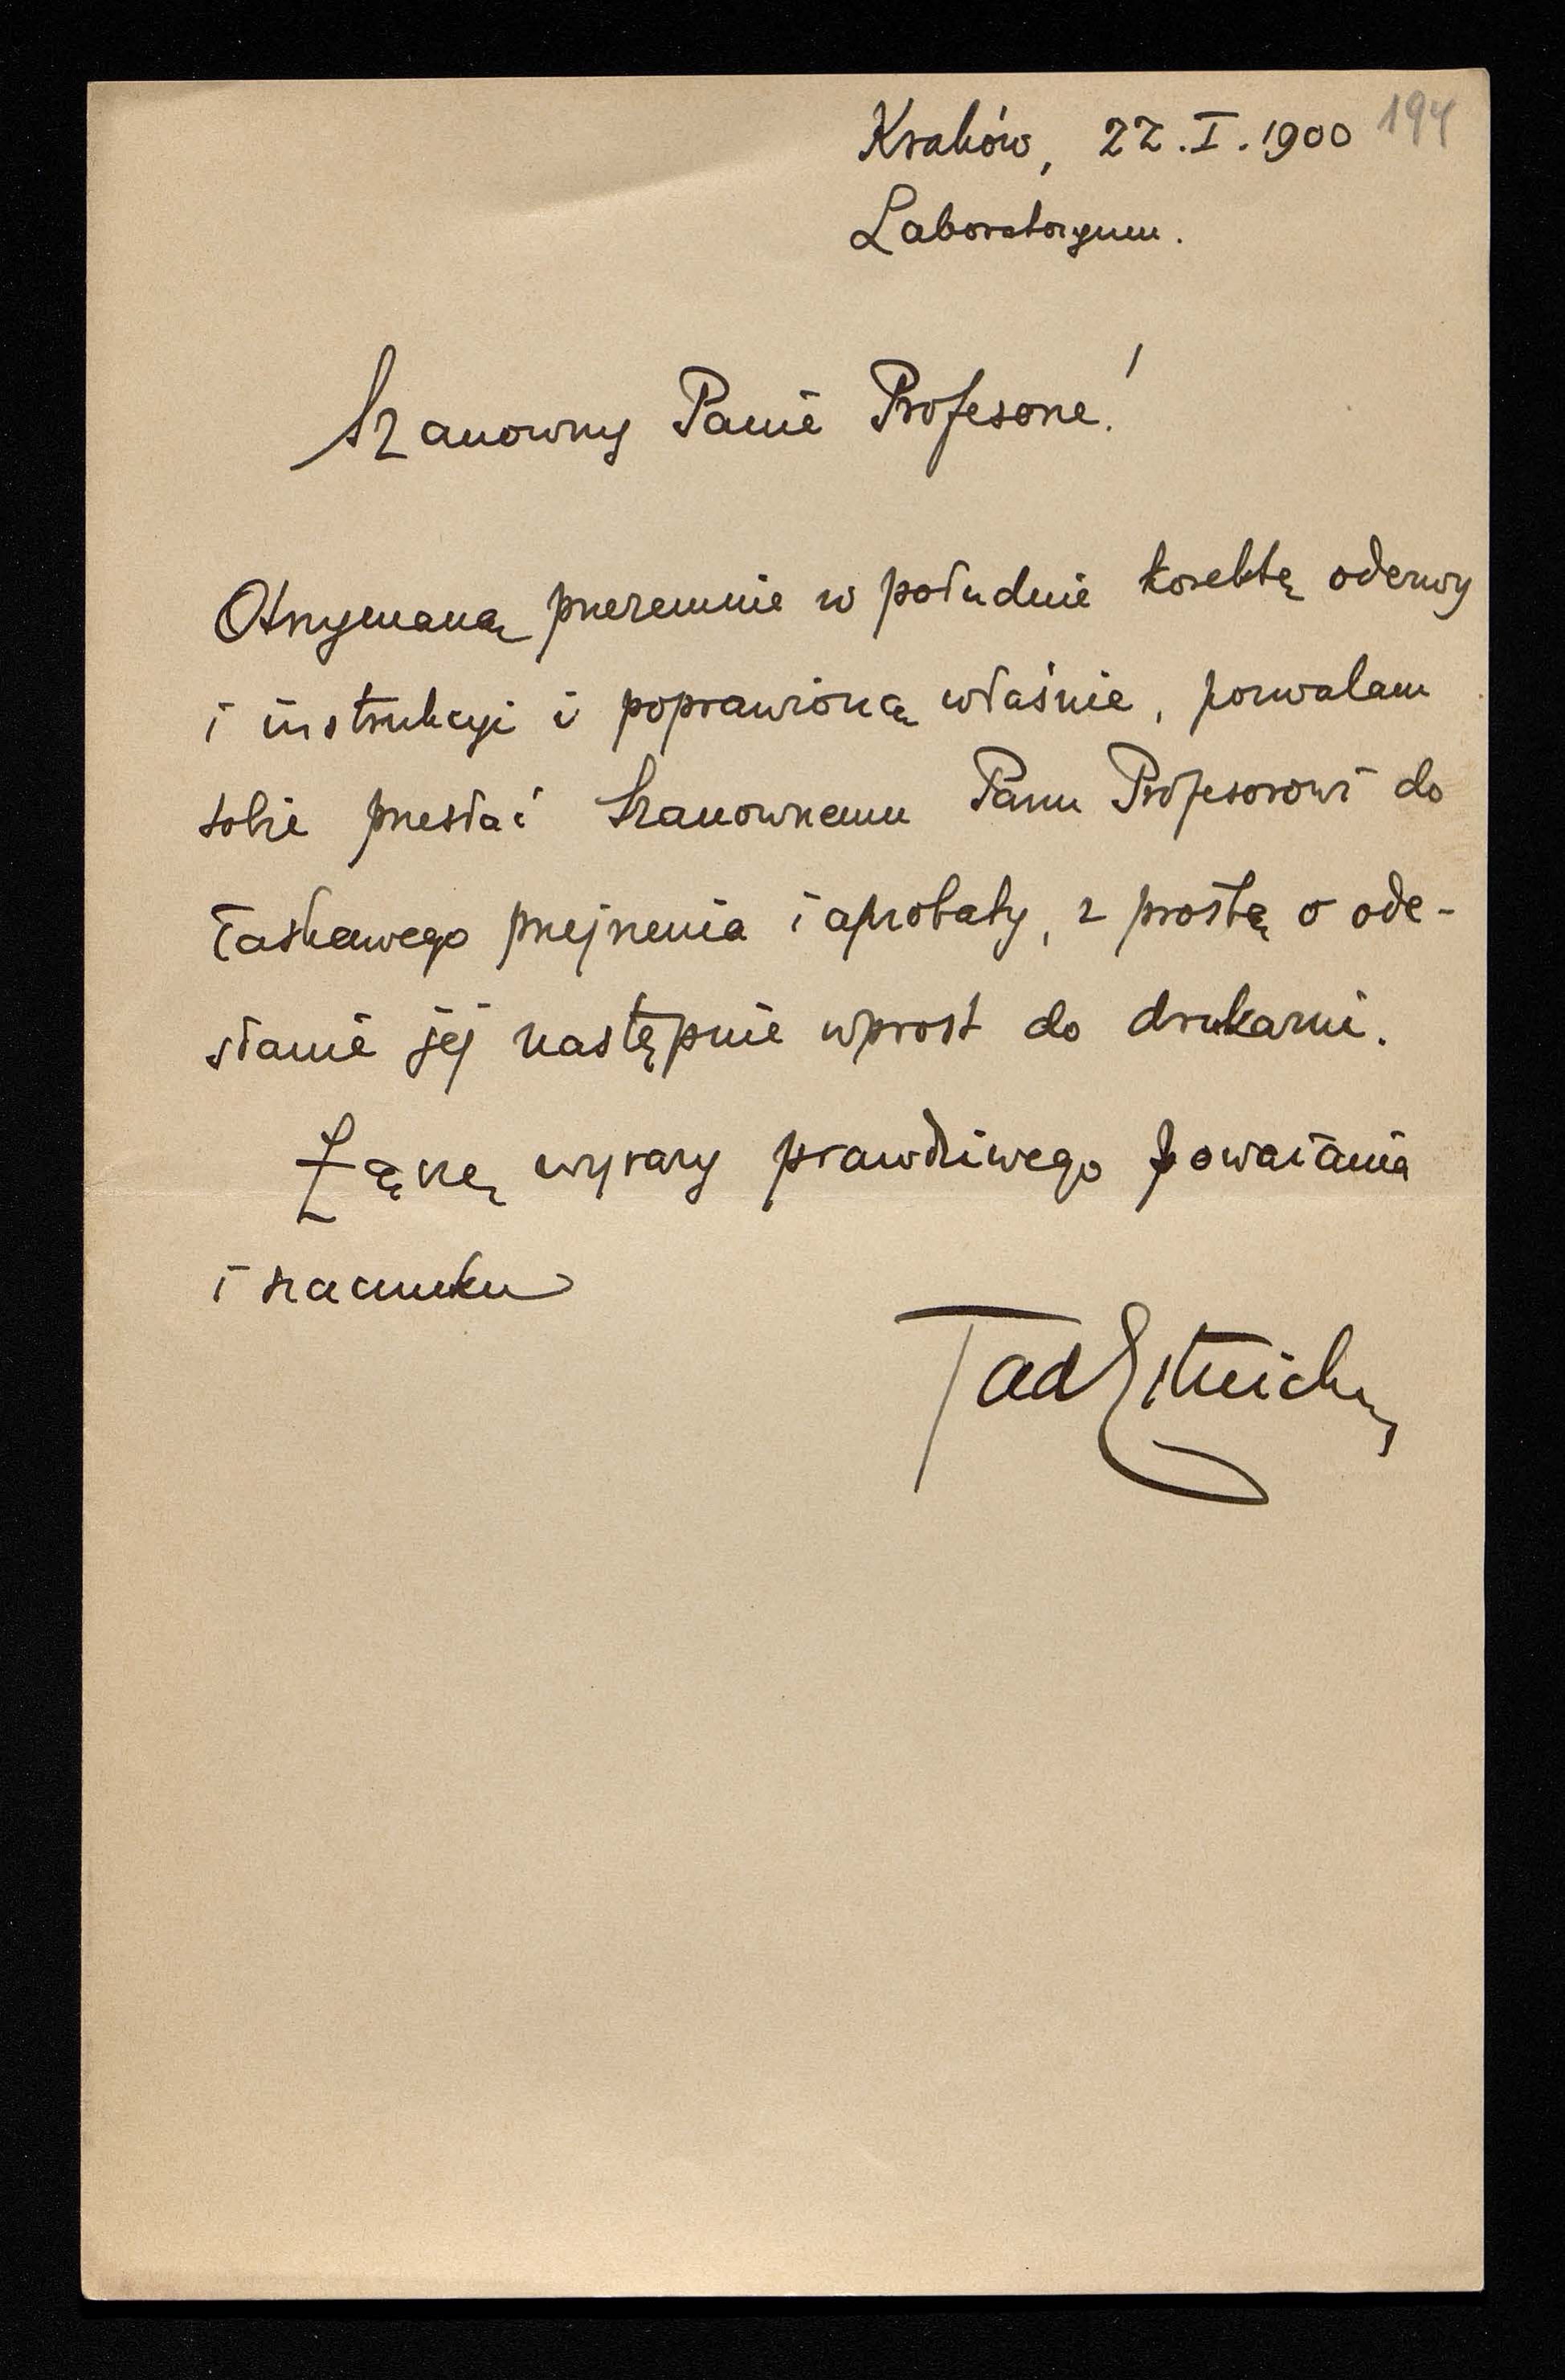 194
Kraków, 22.I.1900
Laboratoryum.
Szanowny Panie Profesorze!
Otrzymaną przezemnie w południe korektę odezwy
i instrukcyi i poprawioną właśnie, pozwalam
sobie przesłać Szanownemu Panu Profesorowi do
łaskawego przejrzenia i aprobaty, z prośbą o ode-
słanie jej następnie wprost do drukarni.
Łączę wyrazy prawdziwego poważania
i szacunku
Tad Estreicher